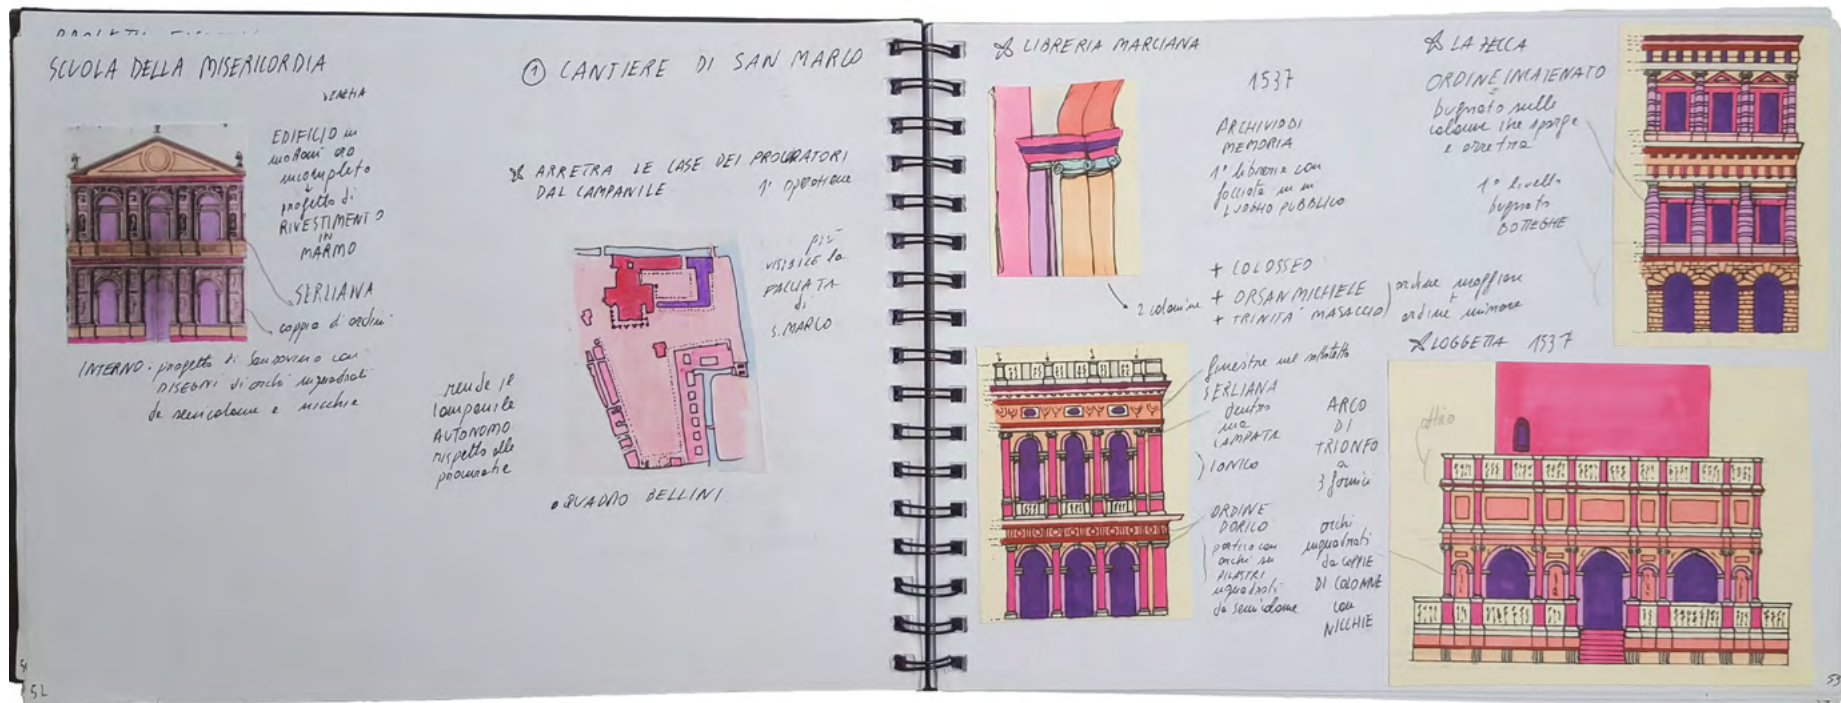 SCUOLA DELLA MISERICORDIA
VENEZIA
EDIFICIO in
mattoni ora
incompleto
progetto di
RIVESTIMENTO
IN
MARMO
SERLIANA
coppia d'ordini
INTERNO: progetto di Sansovino con
DISEGNI di archi inquadrati
da semicolonne e nicchie
1 CANTIERE DI SAN MARCO
ARRETRA LE CASE DEI PROCURATORI
DAL CAMPANILE
1° operazione
più
VISIBILE la
FACCIATA
di
S. MARCO
rende il
campanile
AUTONOMO
rispetto alle
procuratie
QUADRO BELLINI
52
LIBRERIA MARCIANA
1537
ARCHIVIO DI
MEMORIA
1° libreria con
facciata in un
LUOGHO PUBBLICO
2 colonnine
+ COLOSSEO
+ ORSANMICHELE
+ TRINITA' MASACCIO
ordine maggiore
ordine minore
finestre nel sottotetto
SERLIANA
dentro
una
CAMPATA
IONICO
ORDINE
DORICO
portico con
archi su
PILASTRI
inquadrati
da semicolonne
LA ZECCA
ORDINE INCATENATO
bugnato sulle
colonne che sporge
e arretra
1° livello
bugnato
BOTTEGHE
LOGGETTA 1537
attico
ARCO
DI
TRIONFO
a
3 fornici
archi
inquadrati
da COPPIE
DI COLONNE
con
NICCHIE
53